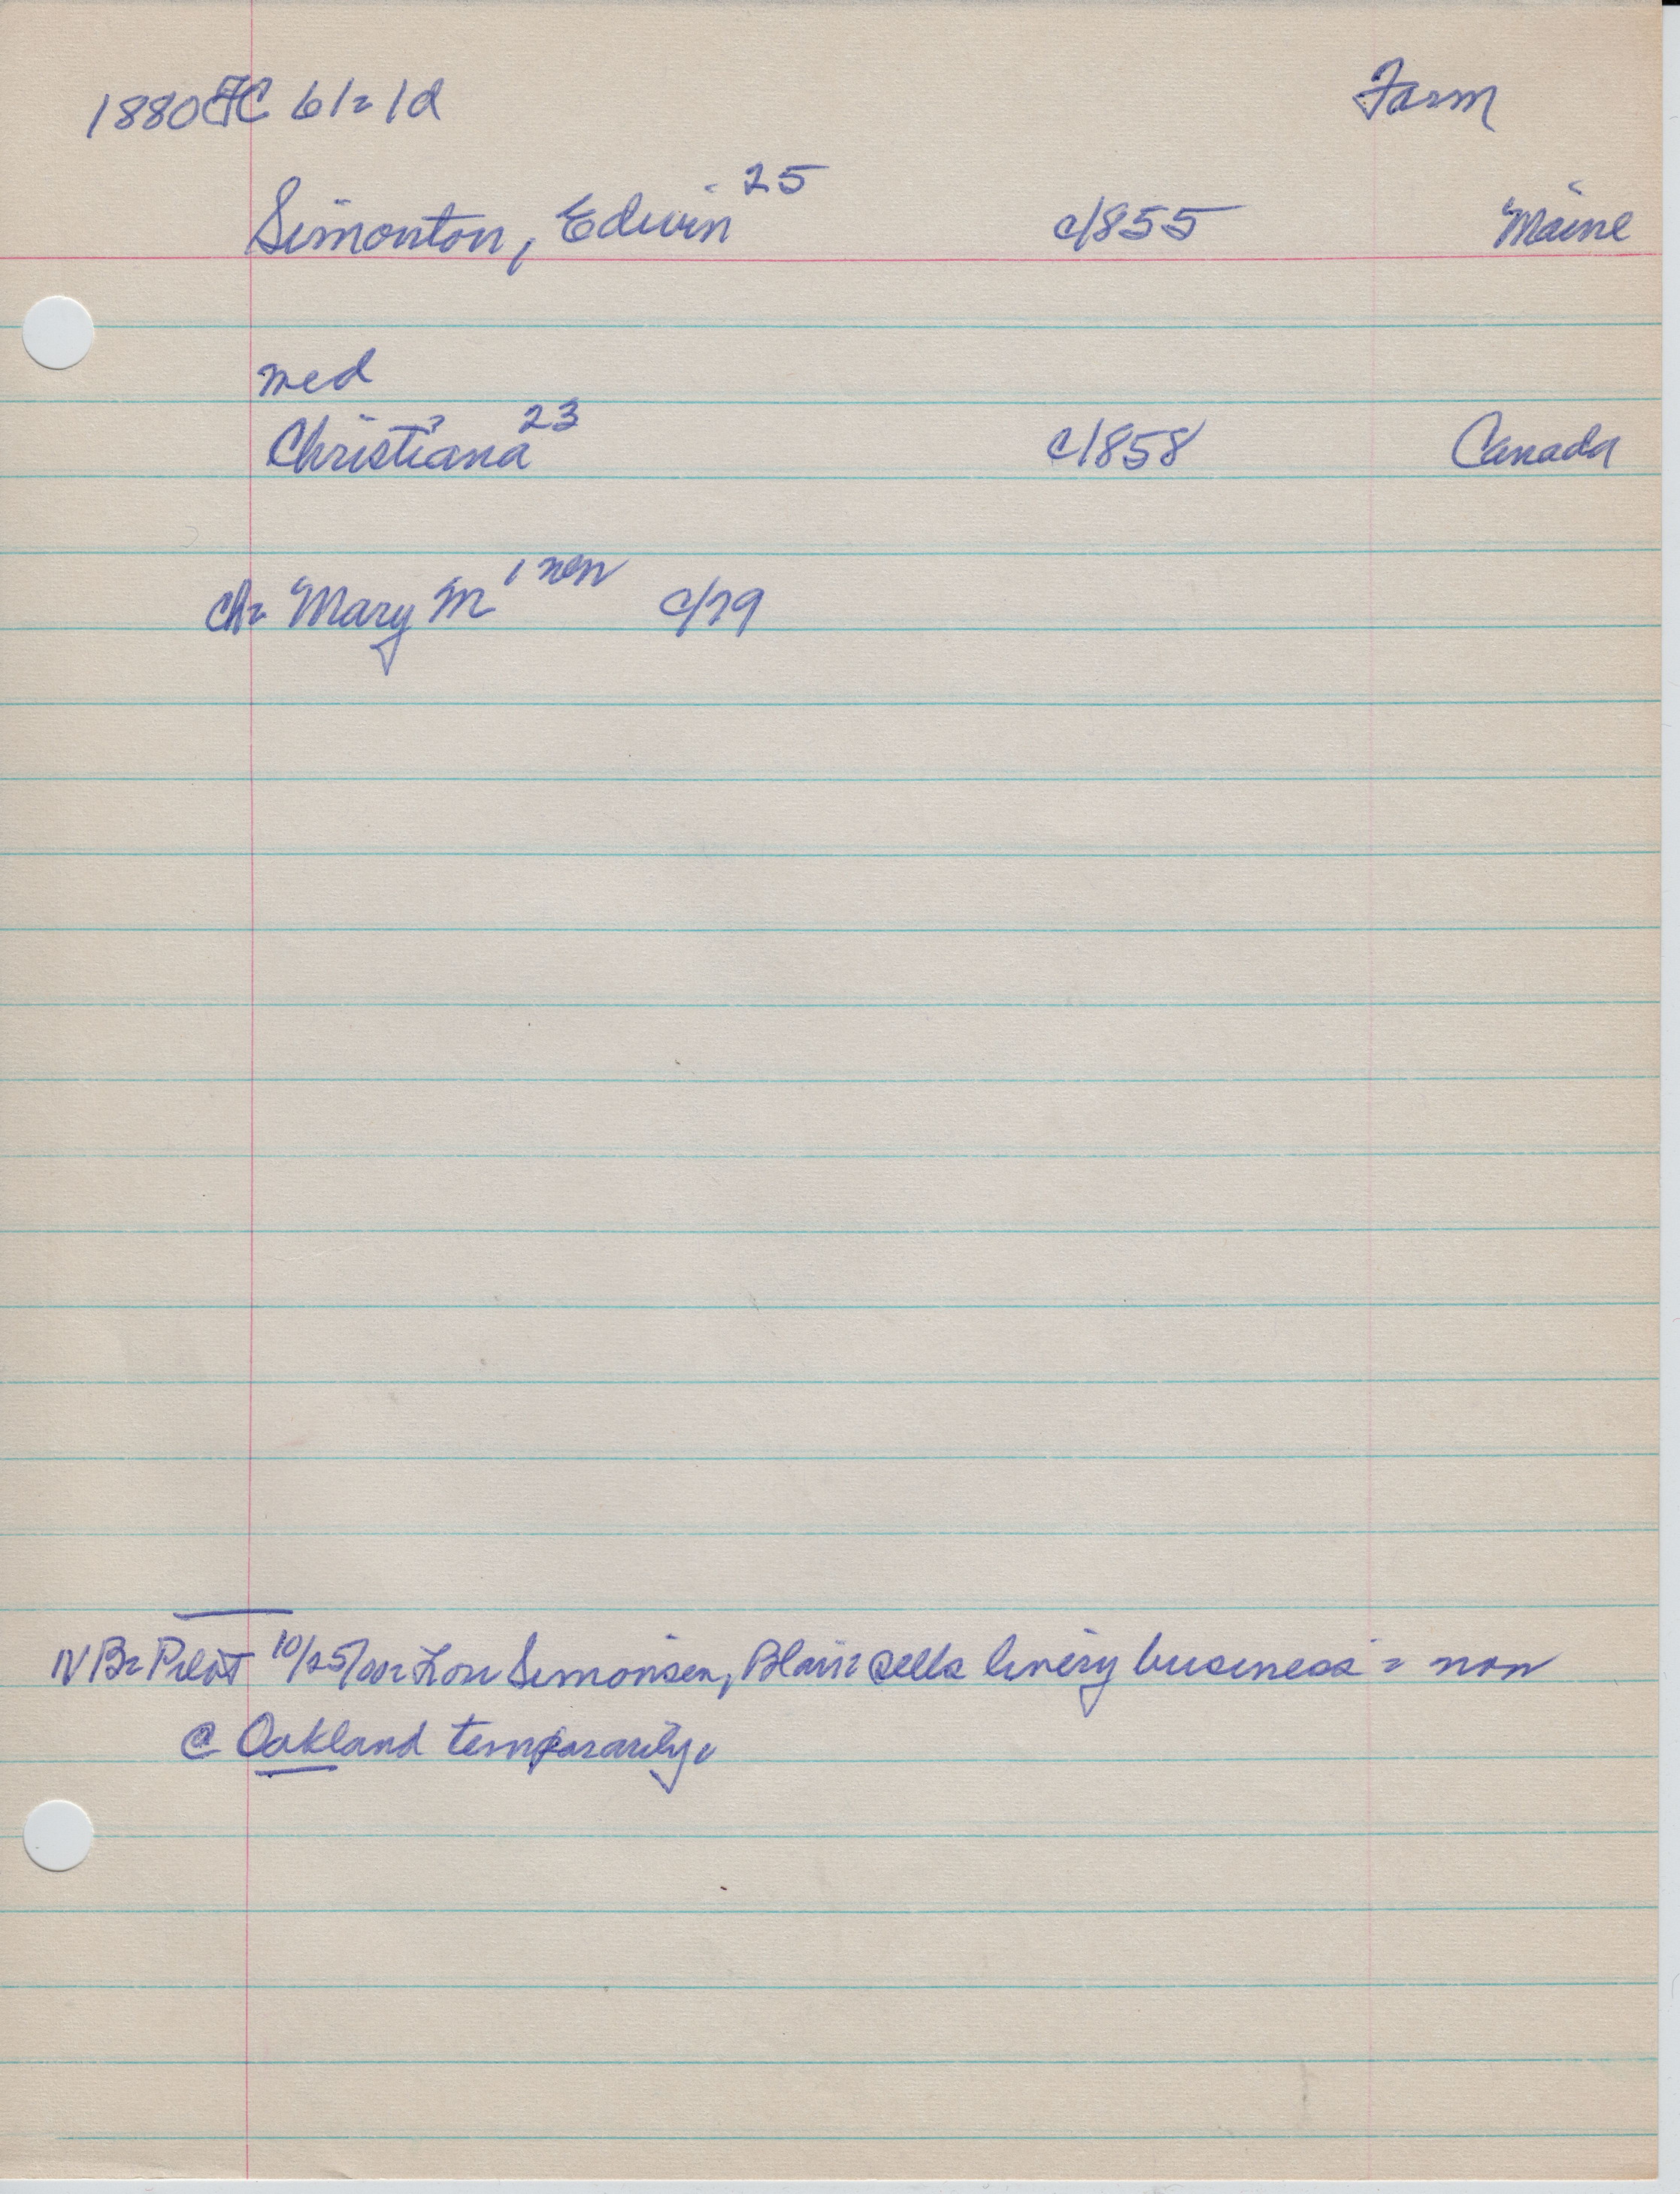 1880 FC 61= 1d Farm
Simonton, Edwin 25 c/855 Maine
med
Christiana 23 c/858 Canada
ch= Mary M 1 non c/79
NB= Pilot 10/25/00= Lou Simonsen, Blair= sells livery business = non
@ Oakland temporarily.